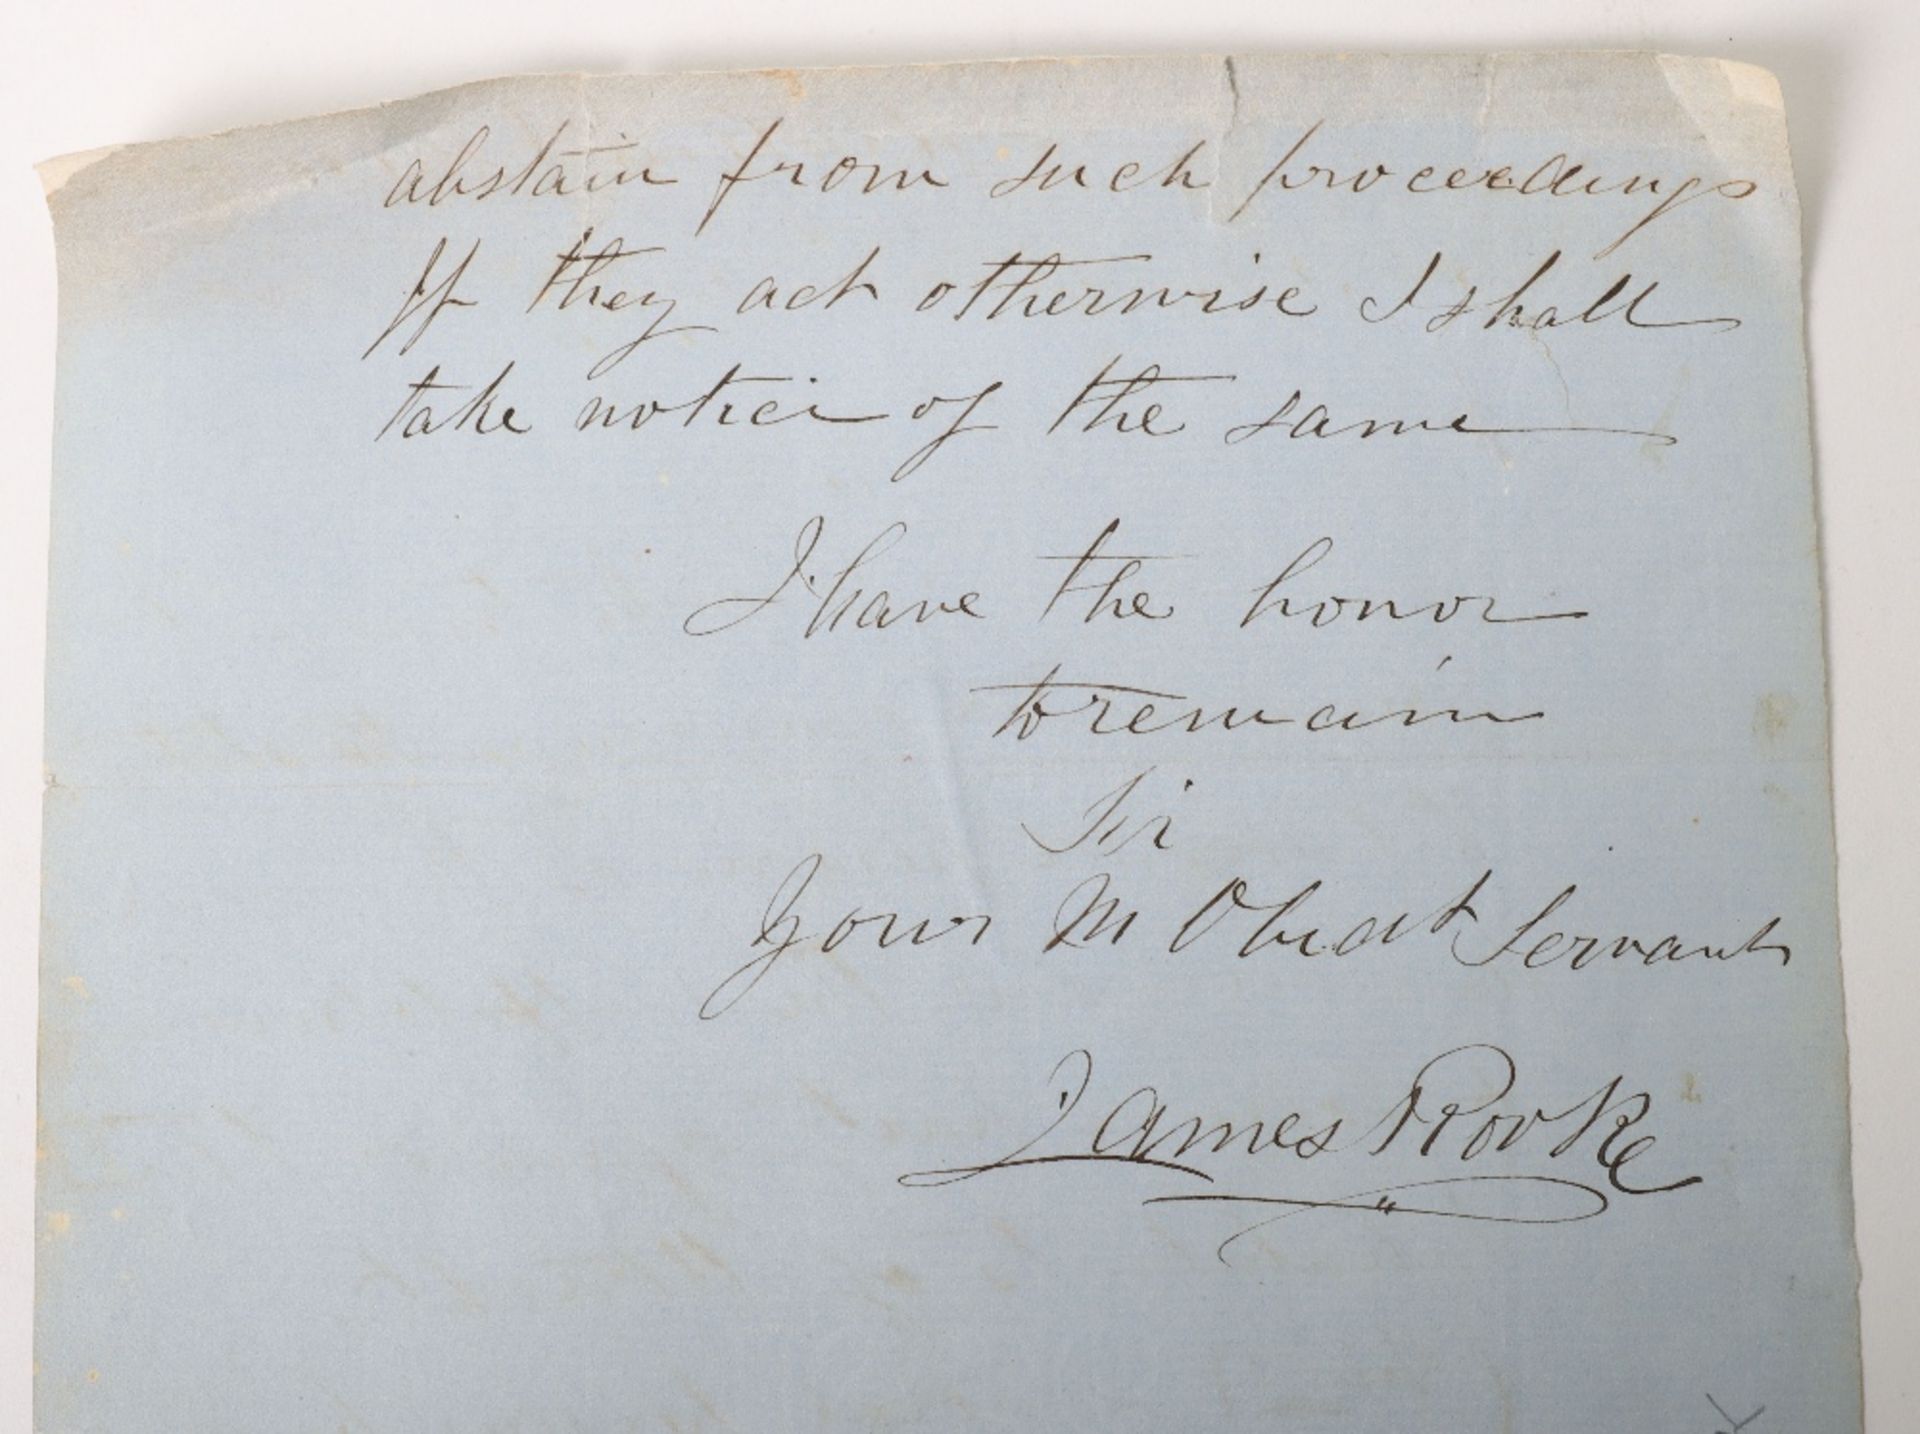 abstain from such proceedings
If they act otherwise I shall
take notice of the same
I have the honor
to remain
Sir
Your M Obedt Servant
James Rooke